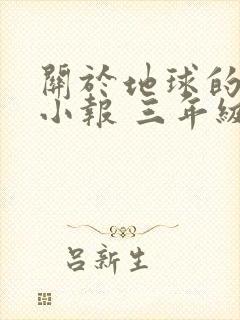 關於地球的
小報 三年級
呂新生